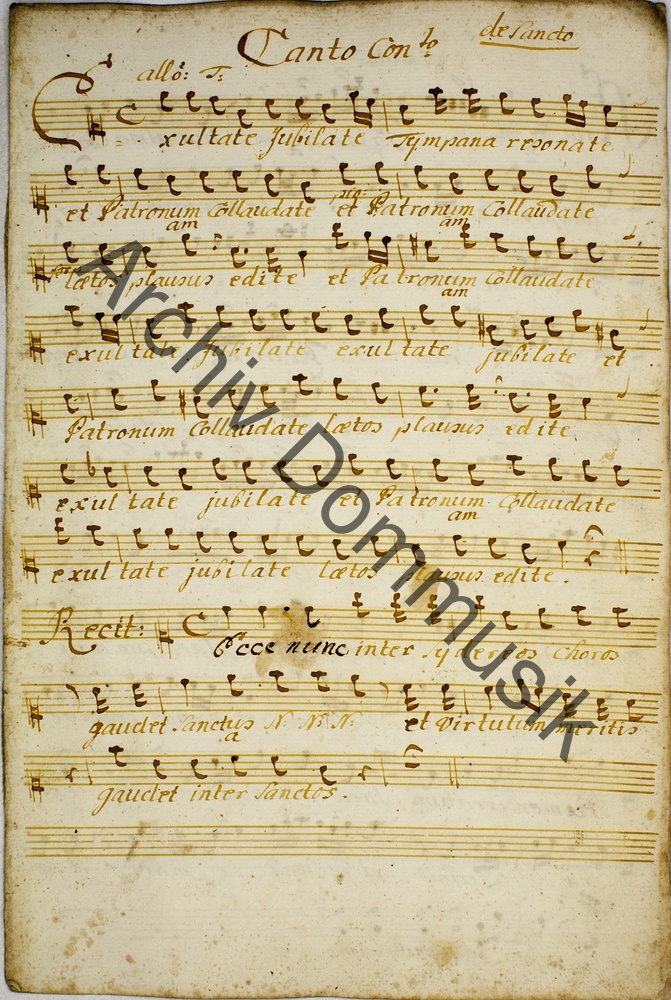 Canto Con:to
de Sancto
allo: T:
Exultate Jubilate Tympana resonate
et Patronum Collaudate et Patronum Collaudate
am am
lætos plausus edite et Patronum Collaudate
am
exultate jubilate exultate jubilate et
Patronum Collaudate lætos plausus edite
exultate jubilate et Patronum Collaudate
am
exultate jubilate lætos plausus edite.
Recit:
Ecce nunc inter syderios Choros
gaudet Sanctus N: N: N: et virtutum meritis
a
gaudet inter Sanctos.
Archiv Dommusik